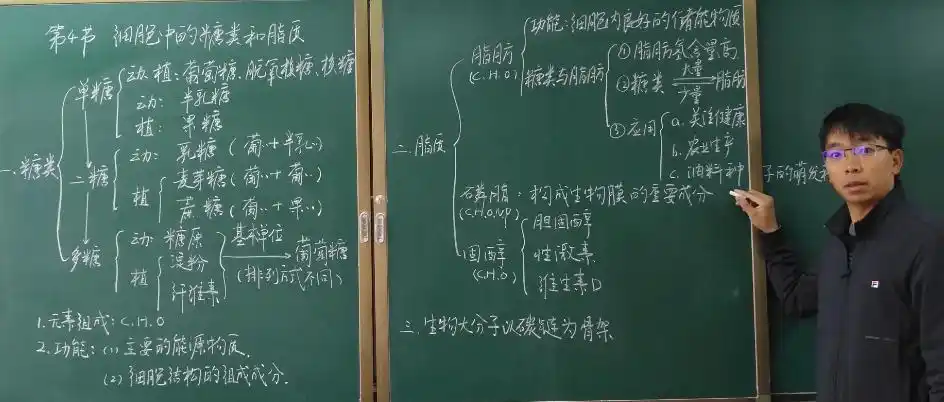 第4节 细胞中的糖类和脂质
一.糖类
单糖
动.植:葡萄糖、脱氧核糖、核糖
动: 半乳糖
植: 果糖
二糖
动: 乳糖(葡··+半乳··)
植
麦芽糖(葡··+葡··)
蔗糖(葡··+果··)
多糖
动: 糖原
植
淀粉
纤维素
基本单位
葡萄糖
(排列方式不同)
1.元素组成: C.H.O
2.功能: (1) 主要的能源物质.
(2) 细胞结构的组成成分.
二.脂质
脂肪
(C.H.O)
功能:细胞内良好的储能物质
糖类与脂肪
①脂肪氢含量高
②糖类 大量 脂肪
少量
③应用
a.关注健康
b.农业生产
c.油料种 子的萌发
磷脂:构成生物膜的重要成分
(C,H,O,N,P)
固醇
(C.H.O)
胆固醇
性激素
维生素D
三.生物大分子以碳链为骨架